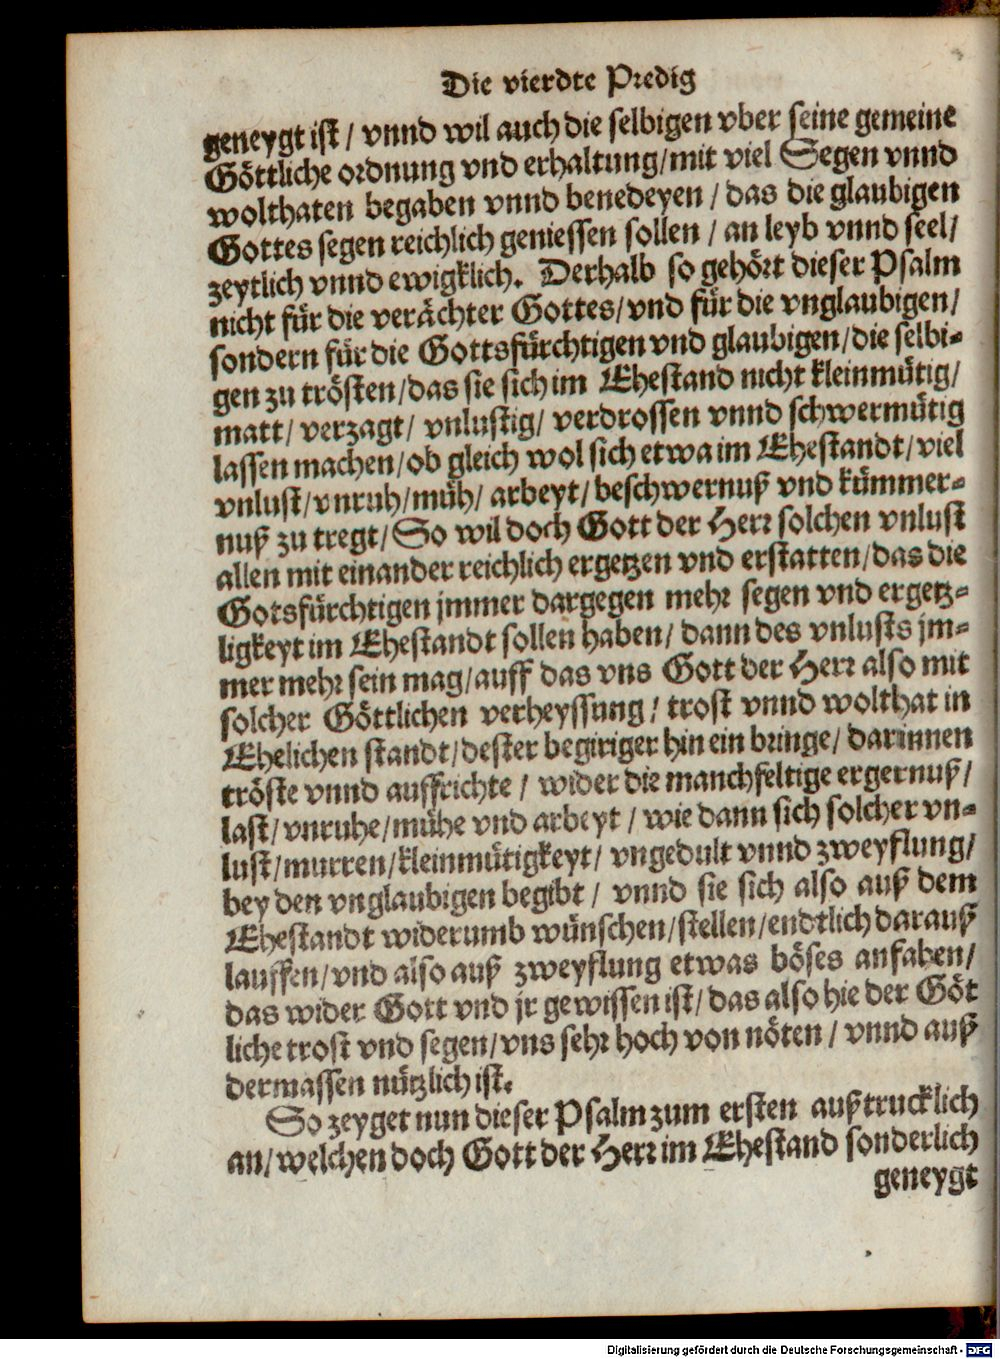 Die vierdte Predig
geneygt ist / vnnd wil auch die selbigen vber seine gemeine
Göttliche ordnung vnd erhaltung/mit viel Segen vnnd
wolthaten begaben vnnd benedeyen / das die glaubigen
Gottes segen reichlich geniessen sollen / an leyb vnnd seel/
zeytlich vnnd ewigklich. Derhalb so gehört dieser Psalm
nicht für die verächter Gottes/vnd für die vnglaubigen/
sondern für die Gottsfürchtigen vnd glaubigen/die selbi-
gen zu trösten/das sie sich im Ehestand nicht kleinmütig/
matt/ verzagt/ vnlustig/ verdrossen vnnd schwermütig
lassen machen/ob gleich wol sich etwa im Ehestandt/viel
vnlust/vnruh/müh/ arbeyt/beschwernuß vnd kümmer-
nuß zu tregt/So wil doch Gott der Herr solchen vnlust
allen mit einander reichlich ergetzen vnd erstatten/das die
Gotsfürchtigen jmmer dargegen mehr segen vnd ergetz-
ligkeyt im Ehestandt sollen haben/ dann des vnlusts jm-
mer mehr sein mag/auff das vns Gott der Herr also mit
solcher Göttlichen verheyssung/ trost vnnd wolthat in
Ehelichen standt/dester begiriger hin ein bringe/ darinnen
tröste vnnd auffrichte / wider die manchfeltige ergernuß/
last/vnruhe/mühe vnd arbeyt / wie dann sich solcher vn-
lust/murren/kleinmütigkeyt/ vngedult vnnd zweyflung/
bey den vnglaubigen begibt / vnnd sie sich also auß dem
Ehestandt widerumb wünschen/stellen/endtlich darauß
lauffen/vnd also auß zweyflung etwas böses anfahen/
das wider Gott vnd jr gewissen ist/das also hie der Göt
liche trost vnd segen/vns sehr hoch von nöten / vnnd auß
dermassen nützlich ist.
So zeyget nun dieser Psalm zum ersten außtrucklich
an/welchen doch Gott der Herr im Ehestand sonderlich
geneygt
Digitalisierung gefördert durch die Deutsche Forschungsgemeinschaft - DFG